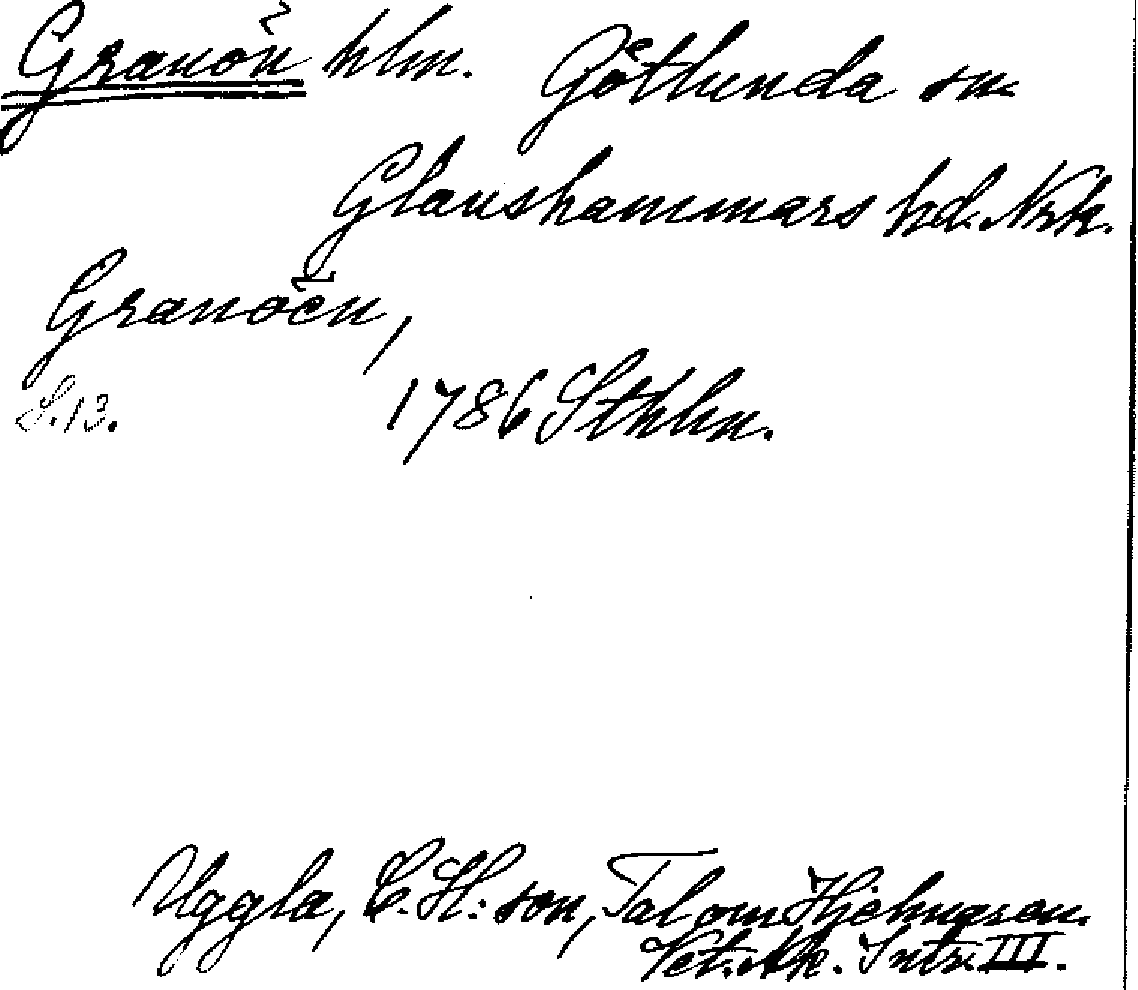 Granön hlm. Götlunda sn
Glanshammars hd. Nrk.
Granöen,
S. 13. 1786 Sthlm.
Uggla, C. H:son, Tal om Hjelmaren.
Vet. Ak. Intr. III.